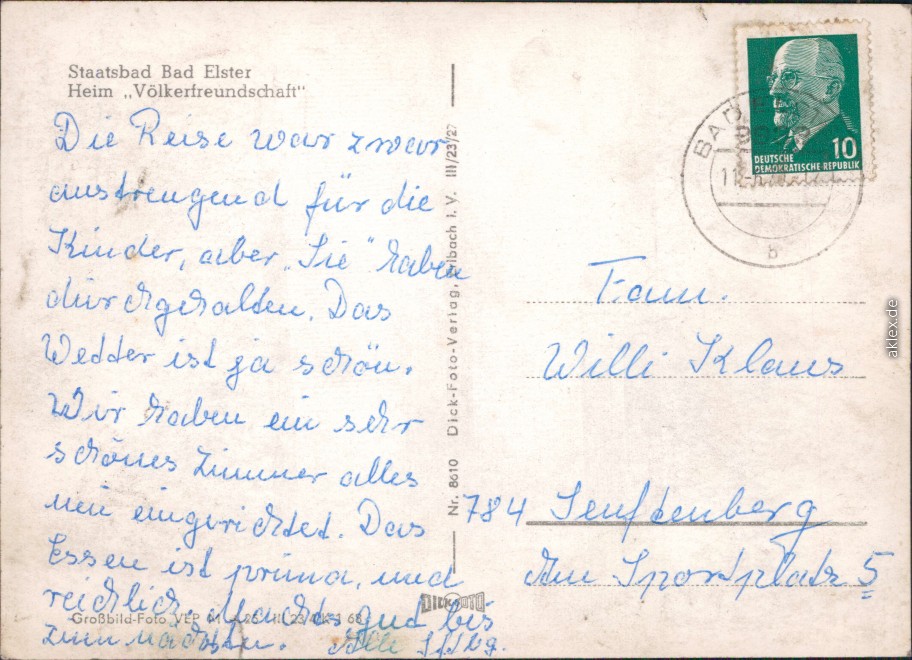 Staatsbad Bad Elster
Heim „Völkerfreundschaft"
Die Reise war zwar
anstrengend für die
Kinder, aber „Sie" haben
durchgehalten. Das
Wedder ist ja schön.
Wir haben ein sehr
schönes Zimmer alles
neu eingerichtet. Das
Essen ist prima, und
reichlich. Machts gut bis
zum nächsten. Alle Sftbg.
Großbild-Foto VEP
Nr. 8610 Dick-Foto-Verlag, Erlbach i. V. III/23/27
DICK FOTO
DEUTSCHE
DEMOKRATISCHE REPUBLIK
10
BAD
b
Fam.
Willi Klaus
784 Senftenberg
Am Sportplatz 5
aklex.de